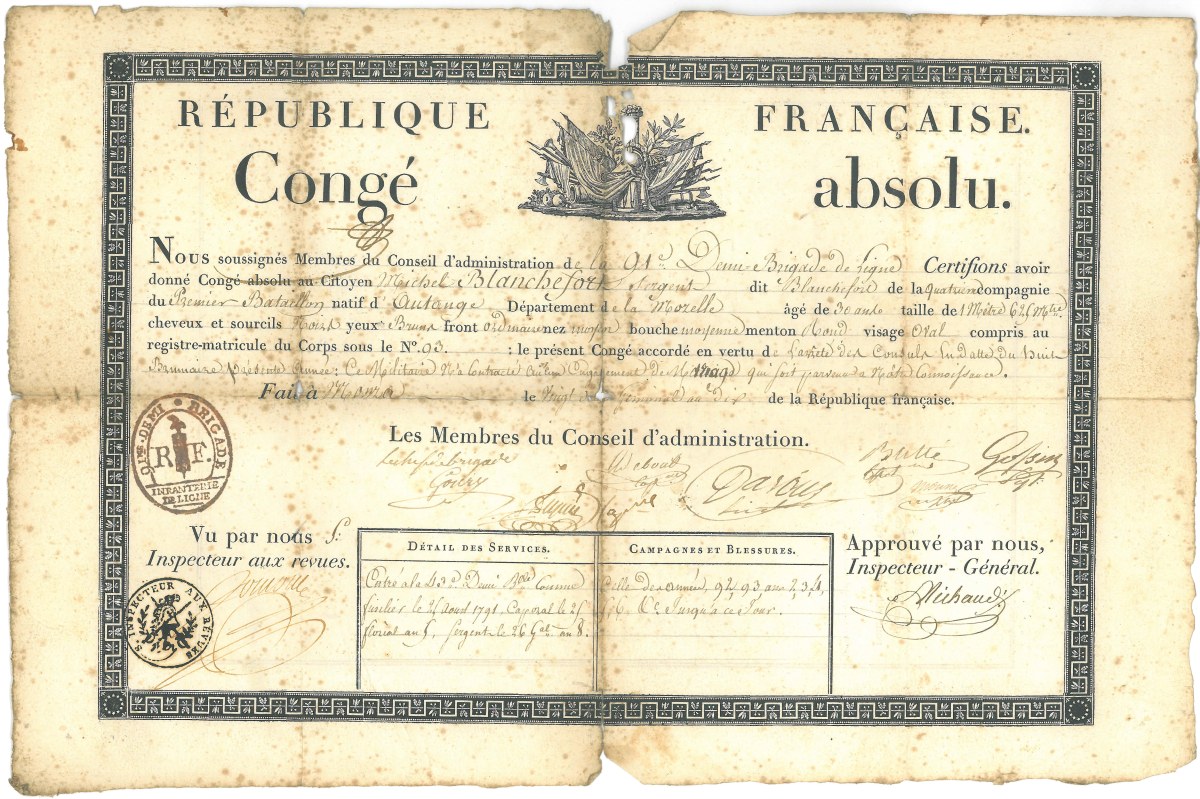 RÉPUBLIQUE FRANÇAISE.
Congé absolu.
NOUS soussignés Membres du Conseil d'administration de la 91e Demi Brigade de Ligne Certifions avoir
donné Congé absolu au Citoyen Michel Blanchefort Sergent dit Blanchefort de la quatrieme compagnie
du Premier Bataillon natif d' Département de la Mozelle âgé de 30 ans taille de 1 Mètre
cheveux et sourcils Noirs yeux Bruns front ordinaire nez moyen bouche moyenne menton Rond visage Oval compris au
registre-matricule du Corps sous le No. 93. ; le présent Congé accordé en vertu de L'arrêté des Consuls En Datte du huit
Brumaire présente année; Ce Militaire N'a Contracté aucun Engagement de Mariage qui soit parvenu a Nôtre Connoissance.
Fait à le Vingt Germinal an dix de la République française.
Les Membres du Conseil d'administration.
91me. DEMI BRIGADE
R F.
INFANTERIE DE LIGNE
Le chef de brigade
Gossin
Sgt.
Vu par nous S:
Inspecteur aux revues.
S. INSPECTEUR AUX REVUES
DÉTAIL DES SERVICES.
Entré a la 43e Demi Bade Comme
fusilier le 25 Aout 1791, Caporal le 25
floréal an 5, Sergent le 26 Gal an 8.
CAMPAGNES ET BLESSURES.
Celle des années, 92, 93 ans 2, 3, 4,
Jusqu'a ce Jour.
Approuvé par nous,
Inspecteur-Général.
Michaud